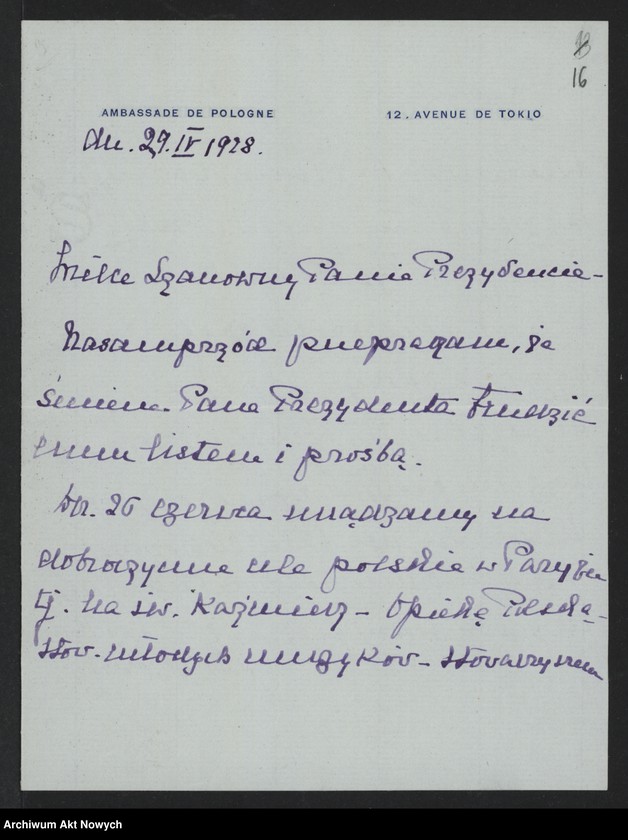 13
16
AMBASSADE DE POLOGNE 12, AVENUE DE TOKIO
dn. 29.IV 1928.
Wielce Szanowny Panie Prezydencie –
Nasamprzód przepraszam, że
śmiem Pana Prezydenta trudzić
listem i prośbą.
Dn. 26 czerwca urządzamy na
dobroczynne cele polskie w Paryżu
tj. na św. Kazimierz – Opiekę Polską –
Stow. młodych muzyków – Stowarzyszen
Archiwum Akt Nowych